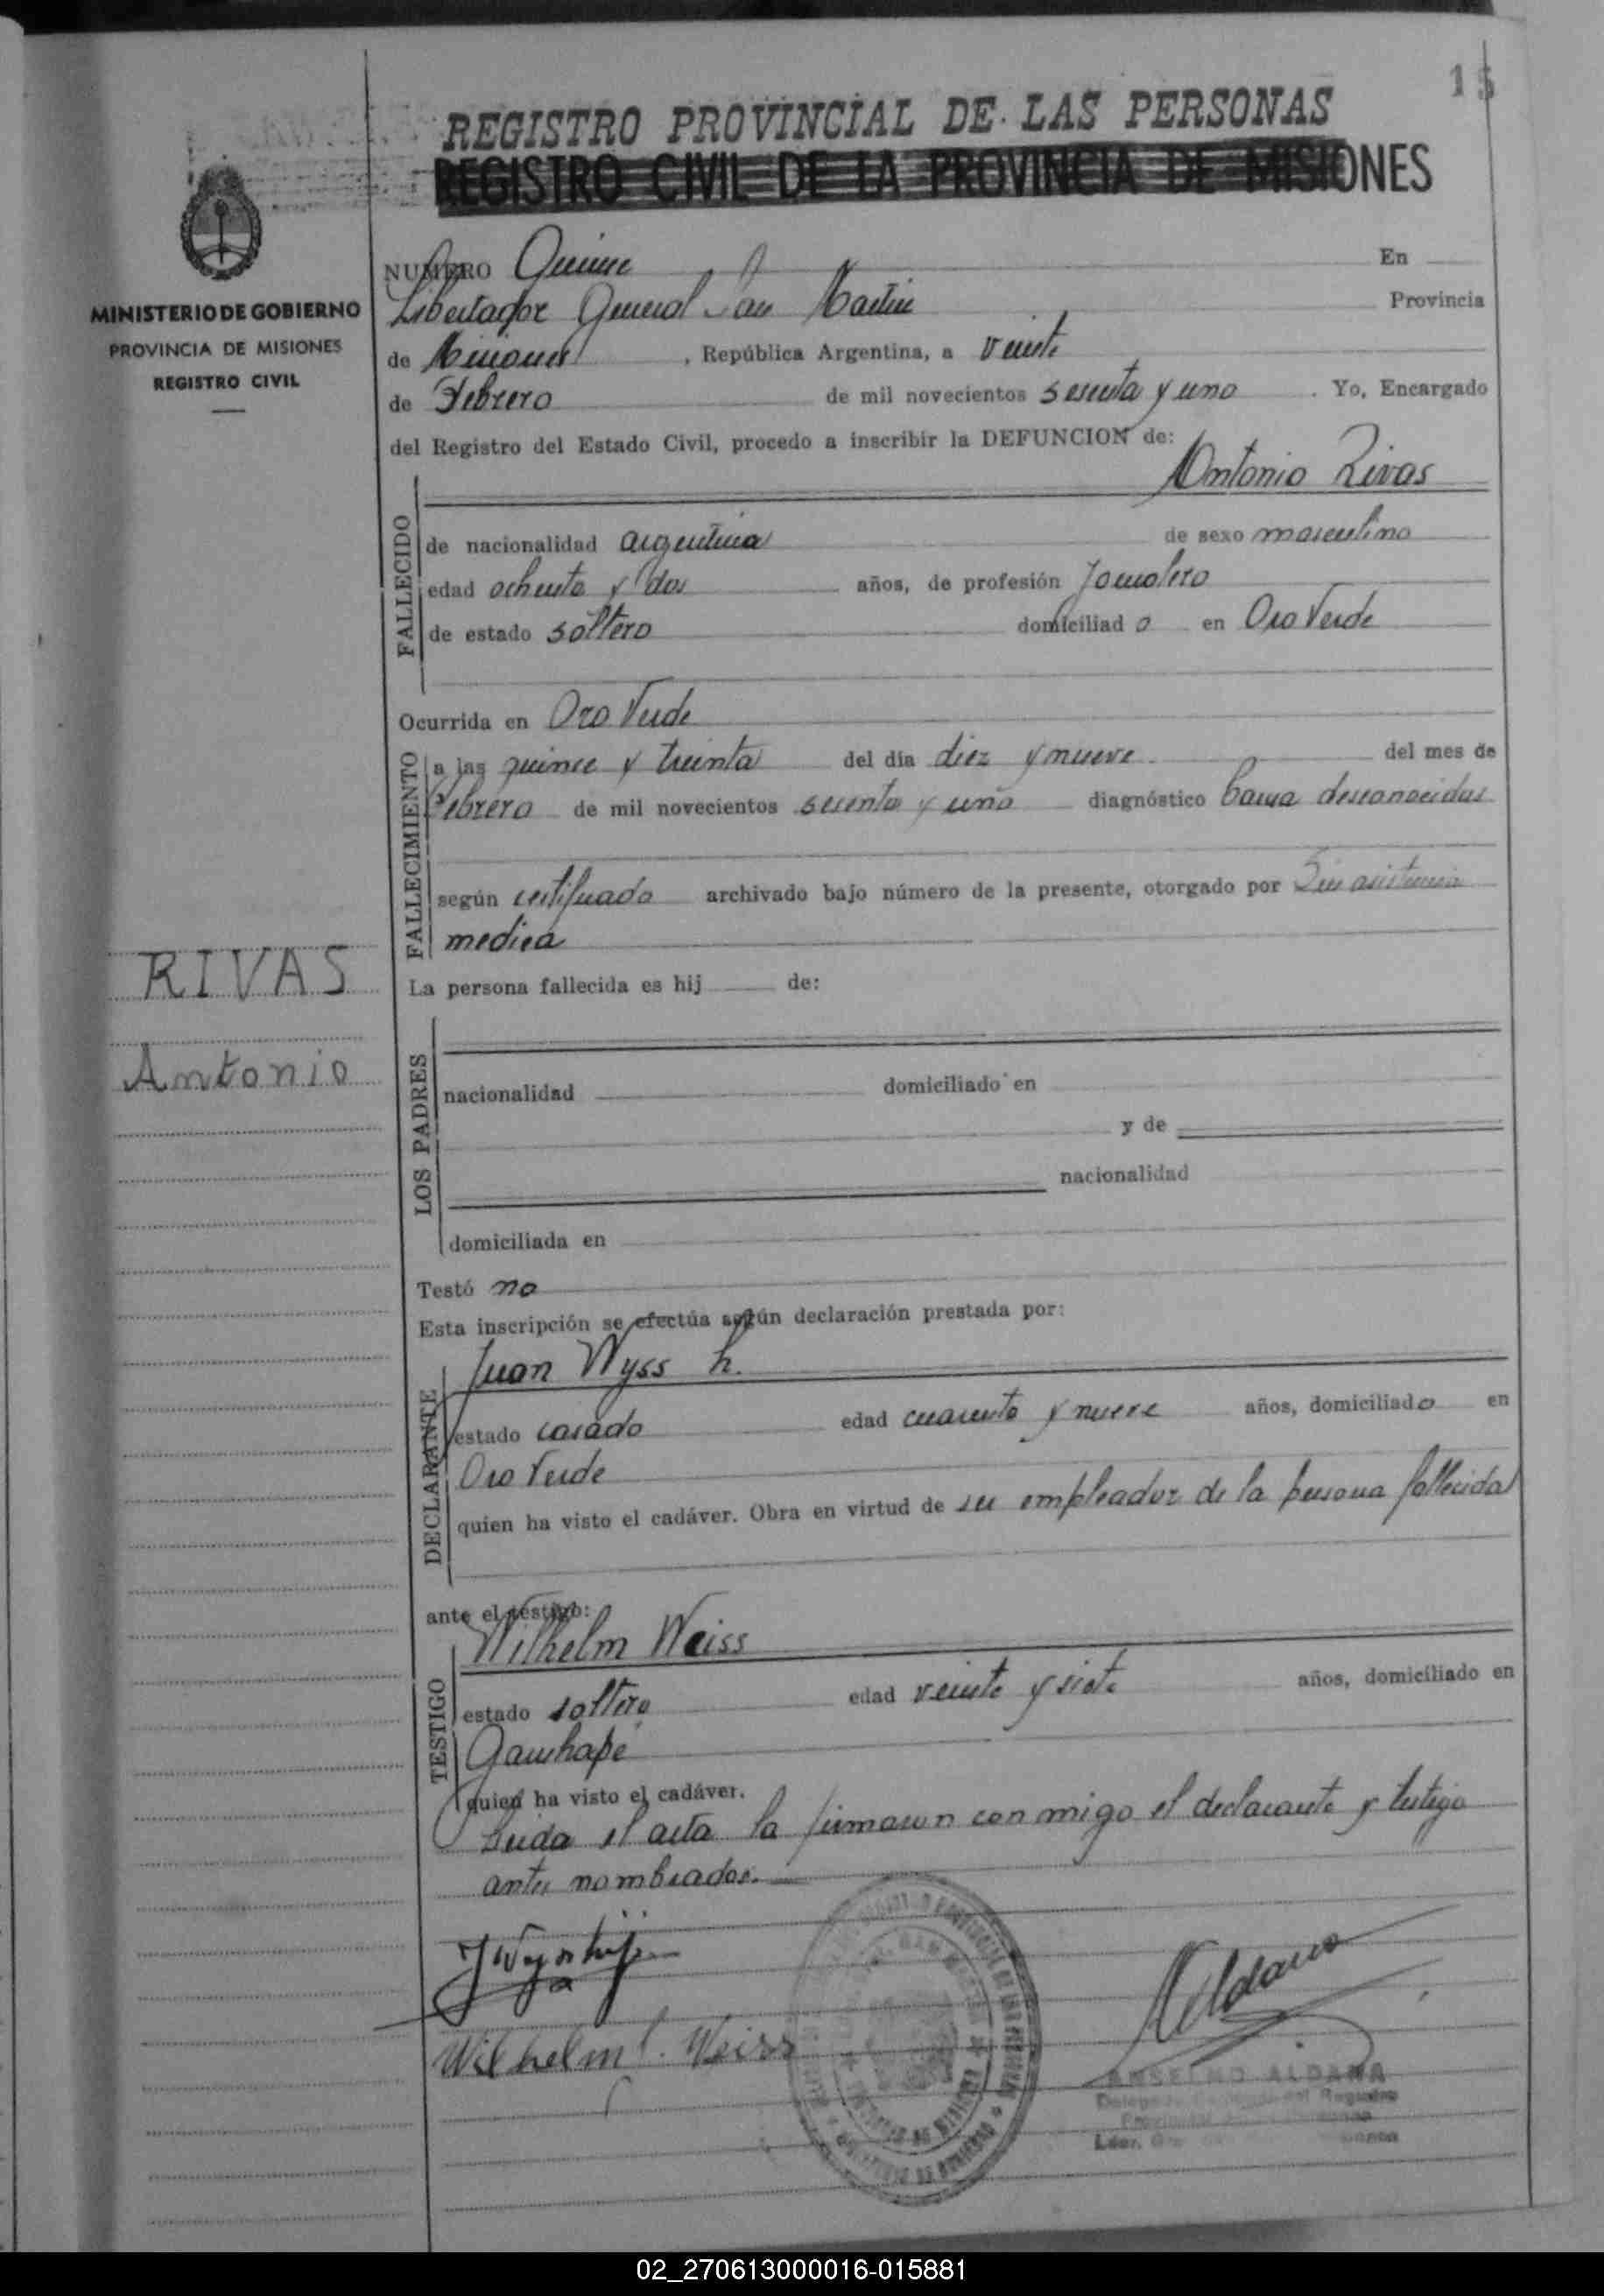 15
REGISTRO PROVINCIAL DE LAS PERSONAS
REGISTRO CIVIL DE LA PROVINCIA DE MISIONES
MINISTERIO DE GOBIERNO
PROVINCIA DE MISIONES
REGISTRO CIVIL
NUMERO Quince En
Libertador General San Martin Provincia
de Misiones, República Argentina, a veinte
de Febrero de mil novecientos sesenta y uno. Yo, Encargado
del Registro del Estado Civil, procedo a inscribir la DEFUNCION de:
Antonio Rivas
FALLECIDO
de nacionalidad argentina de sexo masculino
edad ochenta y dos años, de profesión Jornalero
de estado soltero domiciliado en Oro Verde
Ocurrida en Oro Verde
FALLECIMIENTO
a las quince y treinta del día diez y nueve del mes de
Febrero de mil novecientos sesenta y uno diagnóstico Causa desconocidas
según certificado archivado bajo número de la presente, otorgado por Sin asistencia
medica
RIVAS
Antonio
La persona fallecida es hij de:
LOS PADRES
nacionalidad domiciliado en
y de
nacionalidad
domiciliada en
Testó no
Esta inscripción se efectúa según declaración prestada por:
Juan Wyss h.
DECLARANTE
estado casado edad cuarenta y nueve años, domiciliado en
Oro Verde
quien ha visto el cadáver. Obra en virtud de ser empleador de la persona fallecida
ante el testigo:
Wilhelm Weiss
TESTIGO
estado soltero edad veinte y siete años, domiciliado en
Garuhapé
quien ha visto el cadáver.
Leida el acta la firmaron con migo el declarante y testigo
antes nombrados.
Wilhelm Weiss
ANSELMO ALDANA
02_270613000016-015881